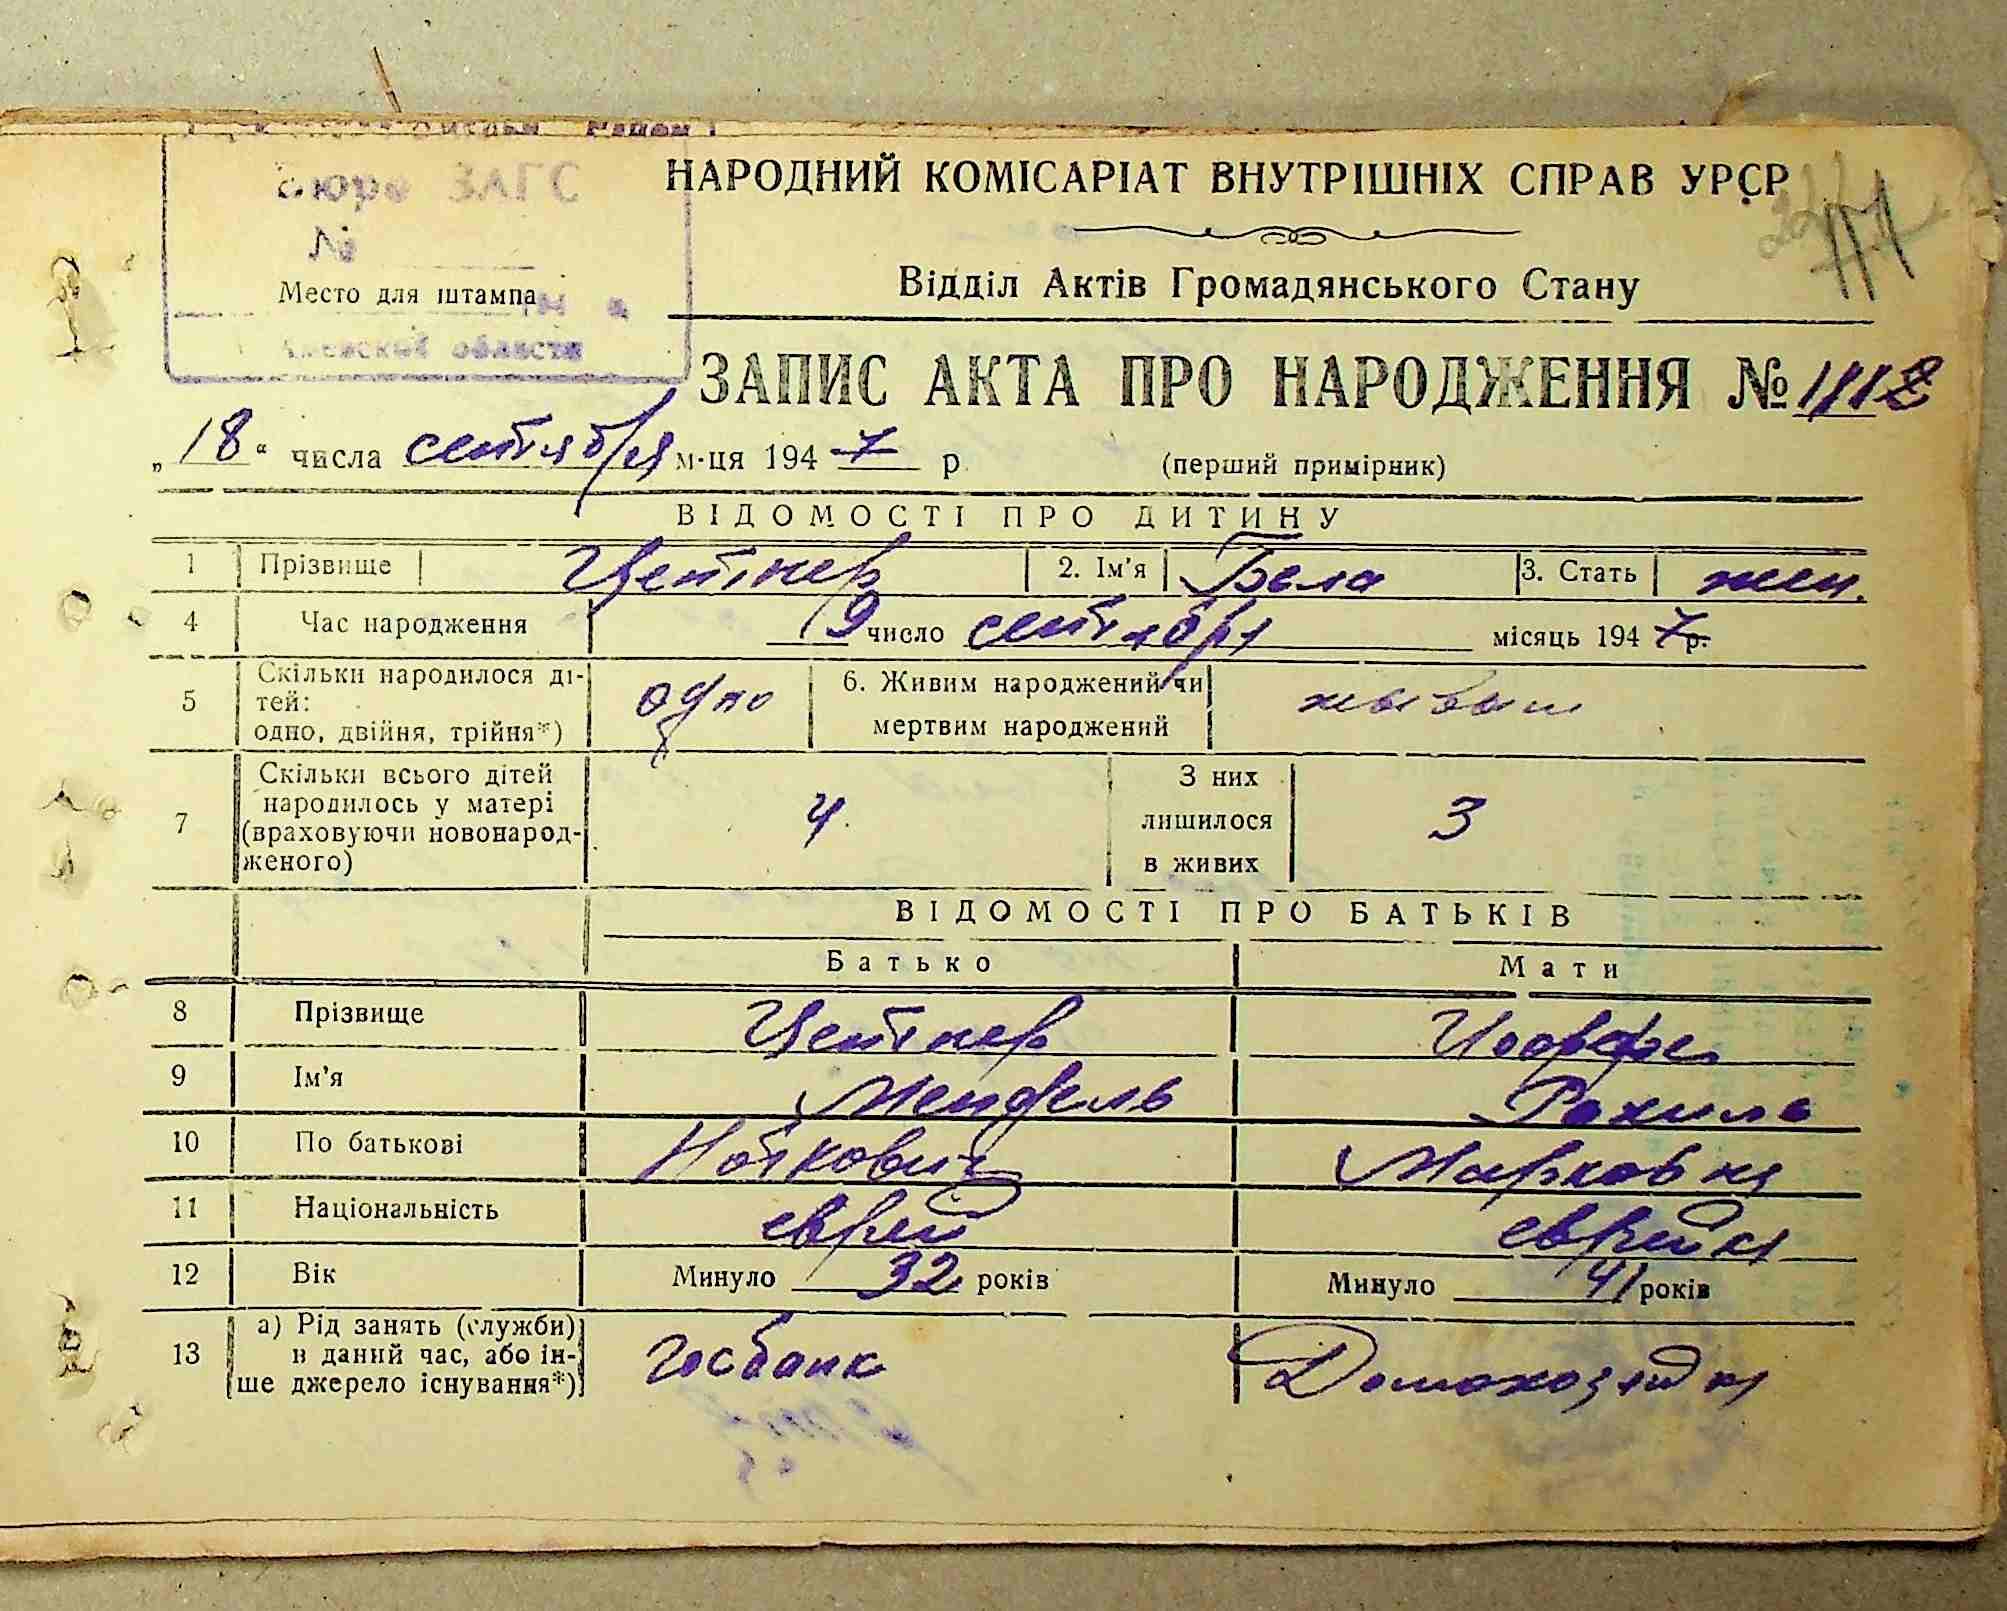 Бюро ЗАГС
№
Место для штампа
области
НАРОДНИЙ КОМІСАРІАТ ВНУТРІШНІХ СПРАВ УРСР
Відділ Актів Громадянського Стану
ЗАПИС АКТА ПРО НАРОДЖЕННЯ № 1112
„18“ числа сентября м-ця 1947 р
(перший примірник)
ВІДОМОСТІ ПРО ДИТИНУ
1 Прізвище Цейтнер 2. Ім'я Бела 3. Стать жен.
4 Час народження 9 число сентября місяць 1947 р.
5 Скільки народилося ді-
тей:
одно, двійня, трійня*)
одно
6. Живим народжений чи
мертвим народжений
живым
7 Скільки всього дітей
народилось у матері
(враховуючи новонарод-
женого)
4
З них
лишилося
в живих
3
ВІДОМОСТІ ПРО БАТЬКІВ
Батько Мати
8 Прізвище Цейтнер Иоффе
9 Ім'я Мендель Рахиль
10 По батькові Ноткович Марковна
11 Національність еврей еврейка
12 Вік Минуло 32 років Минуло 41 років
13 а) Рід занять (служби)
в даний час, або ін-
ше джерело існування*)
Госбанк Домохозяйка